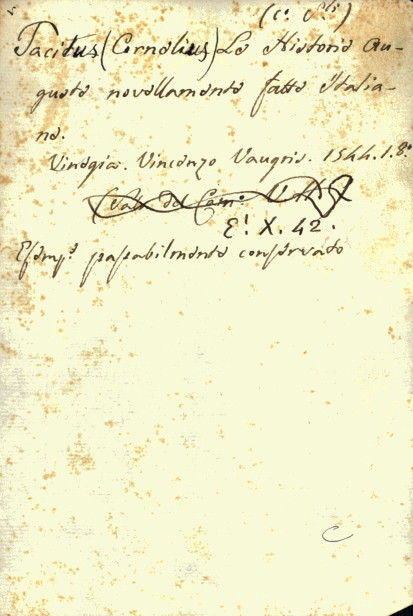 Tacitus (Cornelius) Le Historie Au-
guste novellamente fatte Italia-
ne.
Vinegia. Vincenzo Vaugris. 1544. 1. 8.º
E! X. 42.
Esemp.º passabilmente conservato